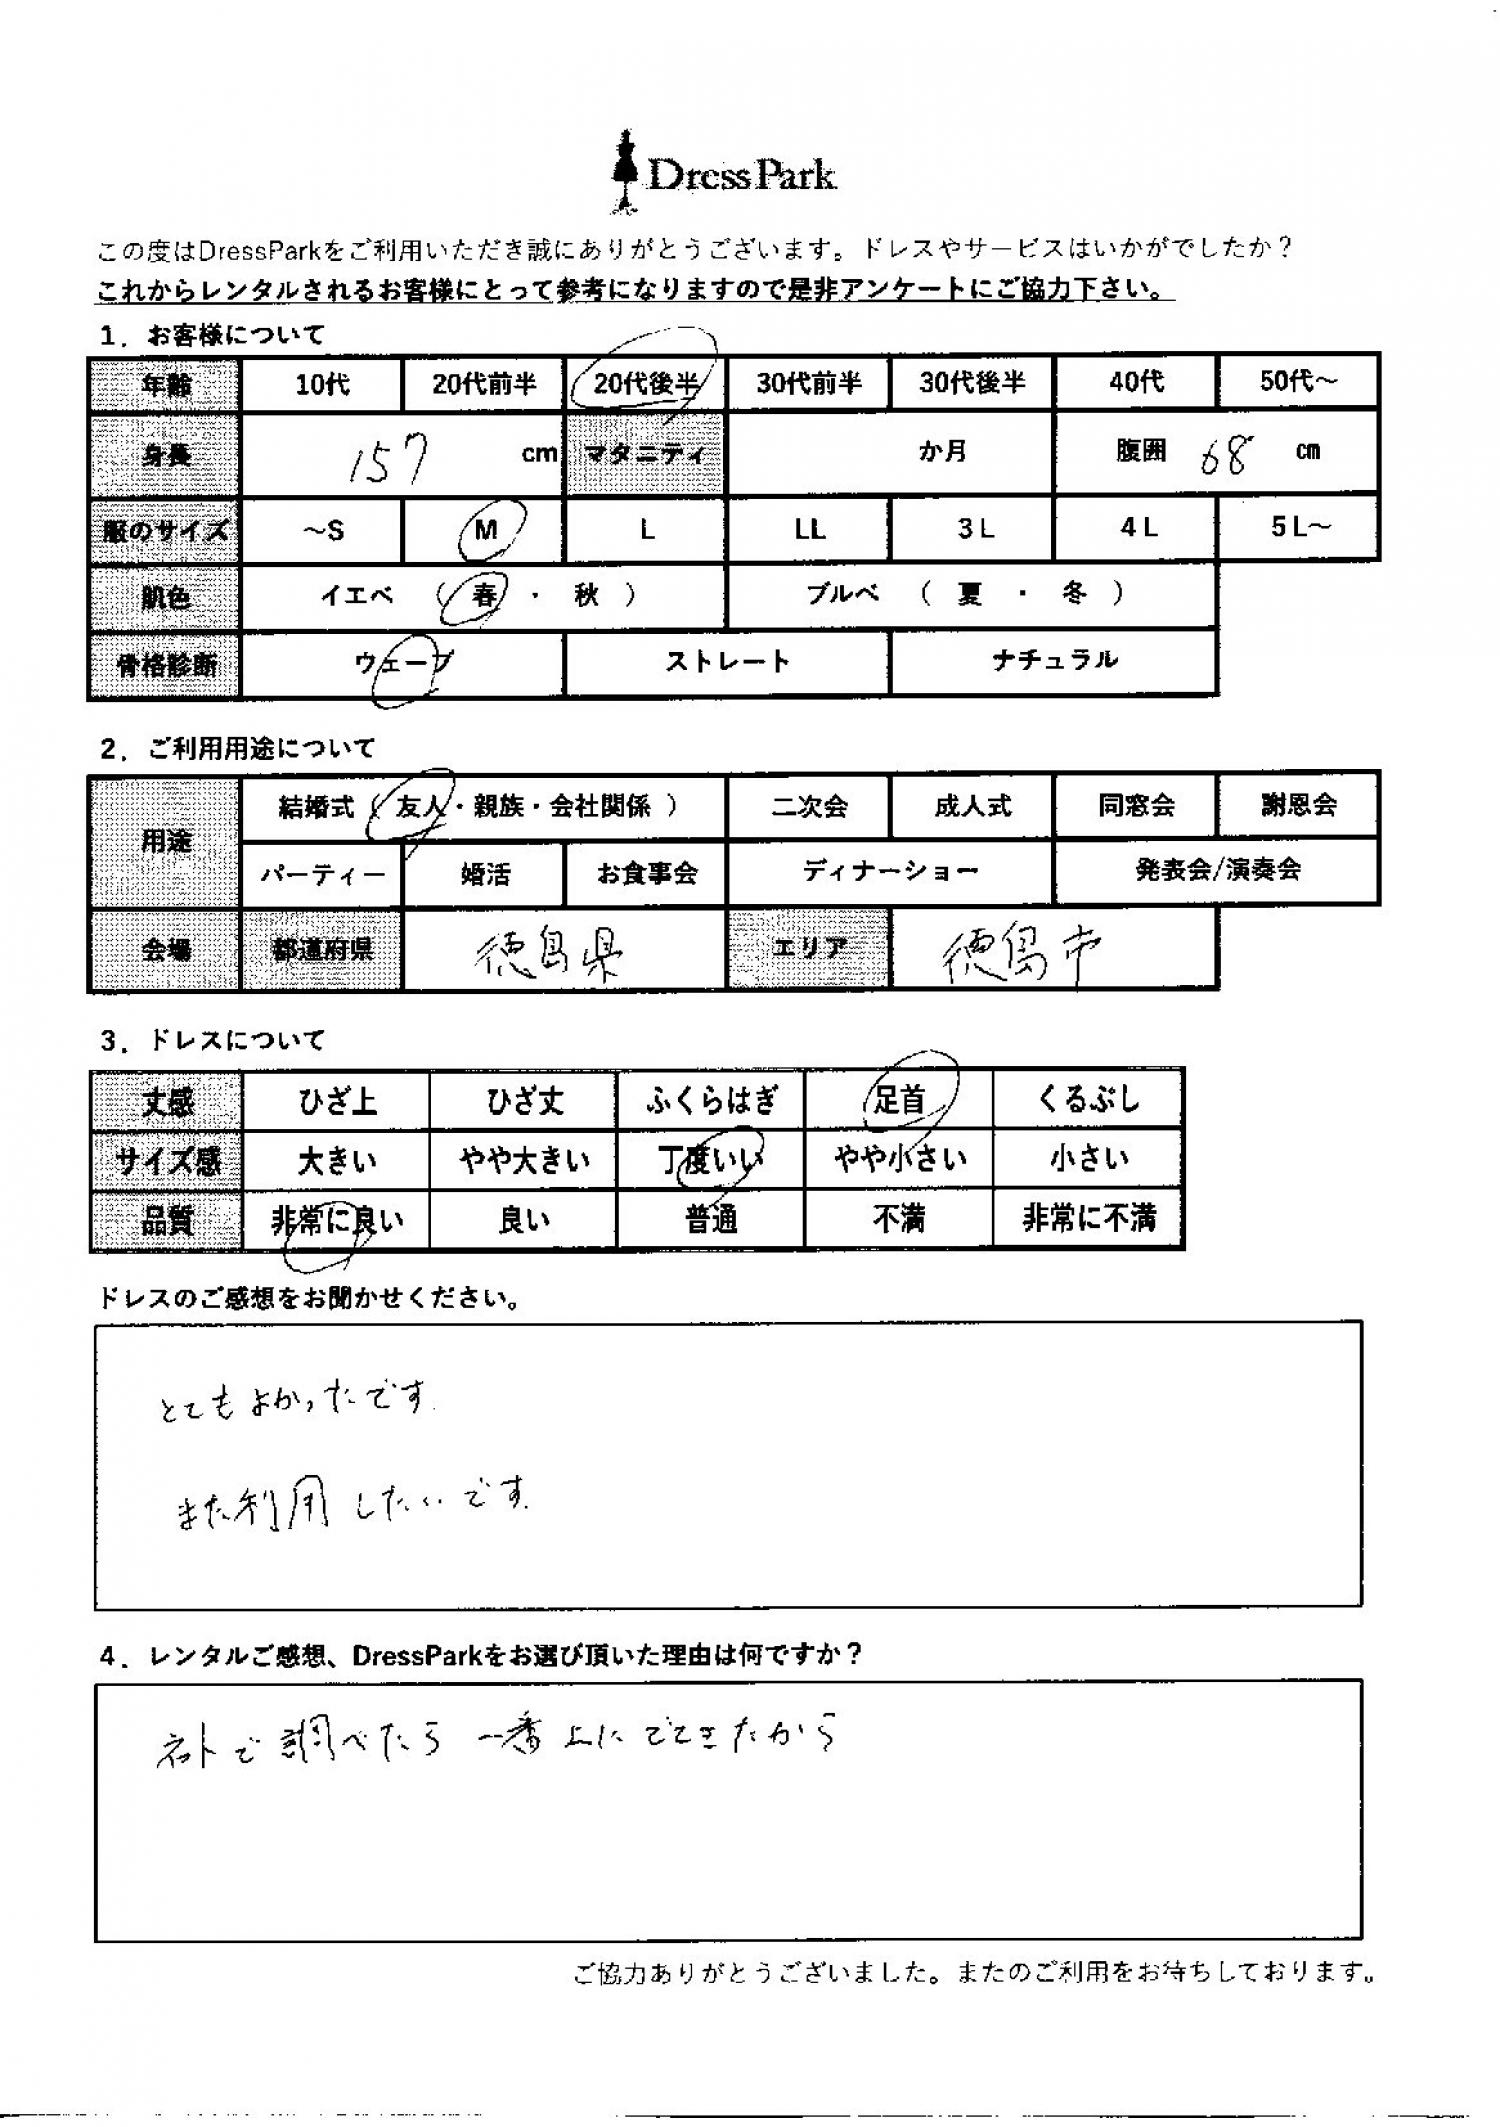 DressPark
この度はDressParkをご利用いただき誠にありがとうございます。ドレスやサービスはいかがでしたか？
これからレンタルされるお客様にとって参考になりますので是非アンケートにご協力下さい。
1．お客様について
年齢 10代 20代前半 20代後半 30代前半 30代後半 40代 50代～
身長 157 cm マタニティ か月 腹囲 68 cm
服のサイズ ～S M L LL 3L 4L 5L～
肌色 イエベ （ 春 ・ 秋 ） ブルベ （ 夏 ・ 冬 ）
骨格診断 ウェーブ ストレート ナチュラル
2．ご利用用途について
用途 結婚式（ 友人・親族・会社関係 ） 二次会 成人式 同窓会 謝恩会
パーティー 婚活 お食事会 ディナーショー 発表会/演奏会
会場 都道府県 徳島県 エリア 徳島市
3．ドレスについて
丈感 ひざ上 ひざ丈 ふくらはぎ 足首 くるぶし
サイズ感 大きい やや大きい 丁度いい やや小さい 小さい
品質 非常に良い 良い 普通 不満 非常に不満
ドレスのご感想をお聞かせください。
とてもよかったです
また利用したいです
4．レンタルご感想、DressParkをお選び頂いた理由は何ですか？
ネットで調べたら一番上にでてきたから
ご協力ありがとうございました。またのご利用をお待ちしております。